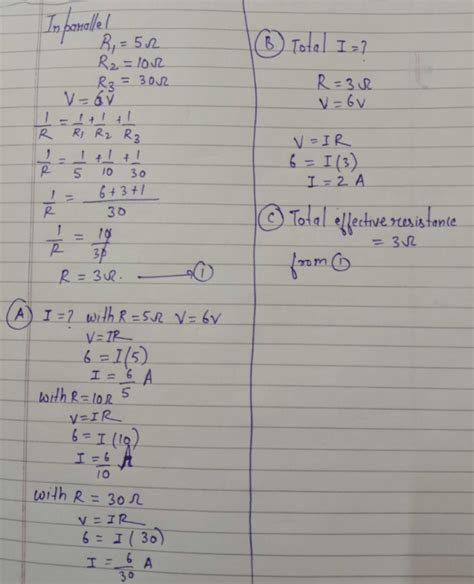 In parallel
R₁ = 5Ω
R₂ = 10Ω
R₃ = 30Ω
V = 6V
1/R = 1/R₁ + 1/R₂ + 1/R₃
1/R = 1/5 + 1/10 + 1/30
1/R = (6+3+1)/30
1/R = 10/30
R = 3Ω. ——→ ①
Ⓐ I = ? with R = 5Ω V = 6V
V = IR
6 = I(5)
I = 6/5 A
with R = 10Ω
V = IR
6 = I(10)
I = 6/10 A
with R = 30Ω
V = IR
6 = I(30)
I = 6/30 A
Ⓑ Total I = ?
R = 3Ω
V = 6V
V = IR
6 = I(3)
I = 2 A
Ⓒ Total effective resistance
= 3Ω
from ①